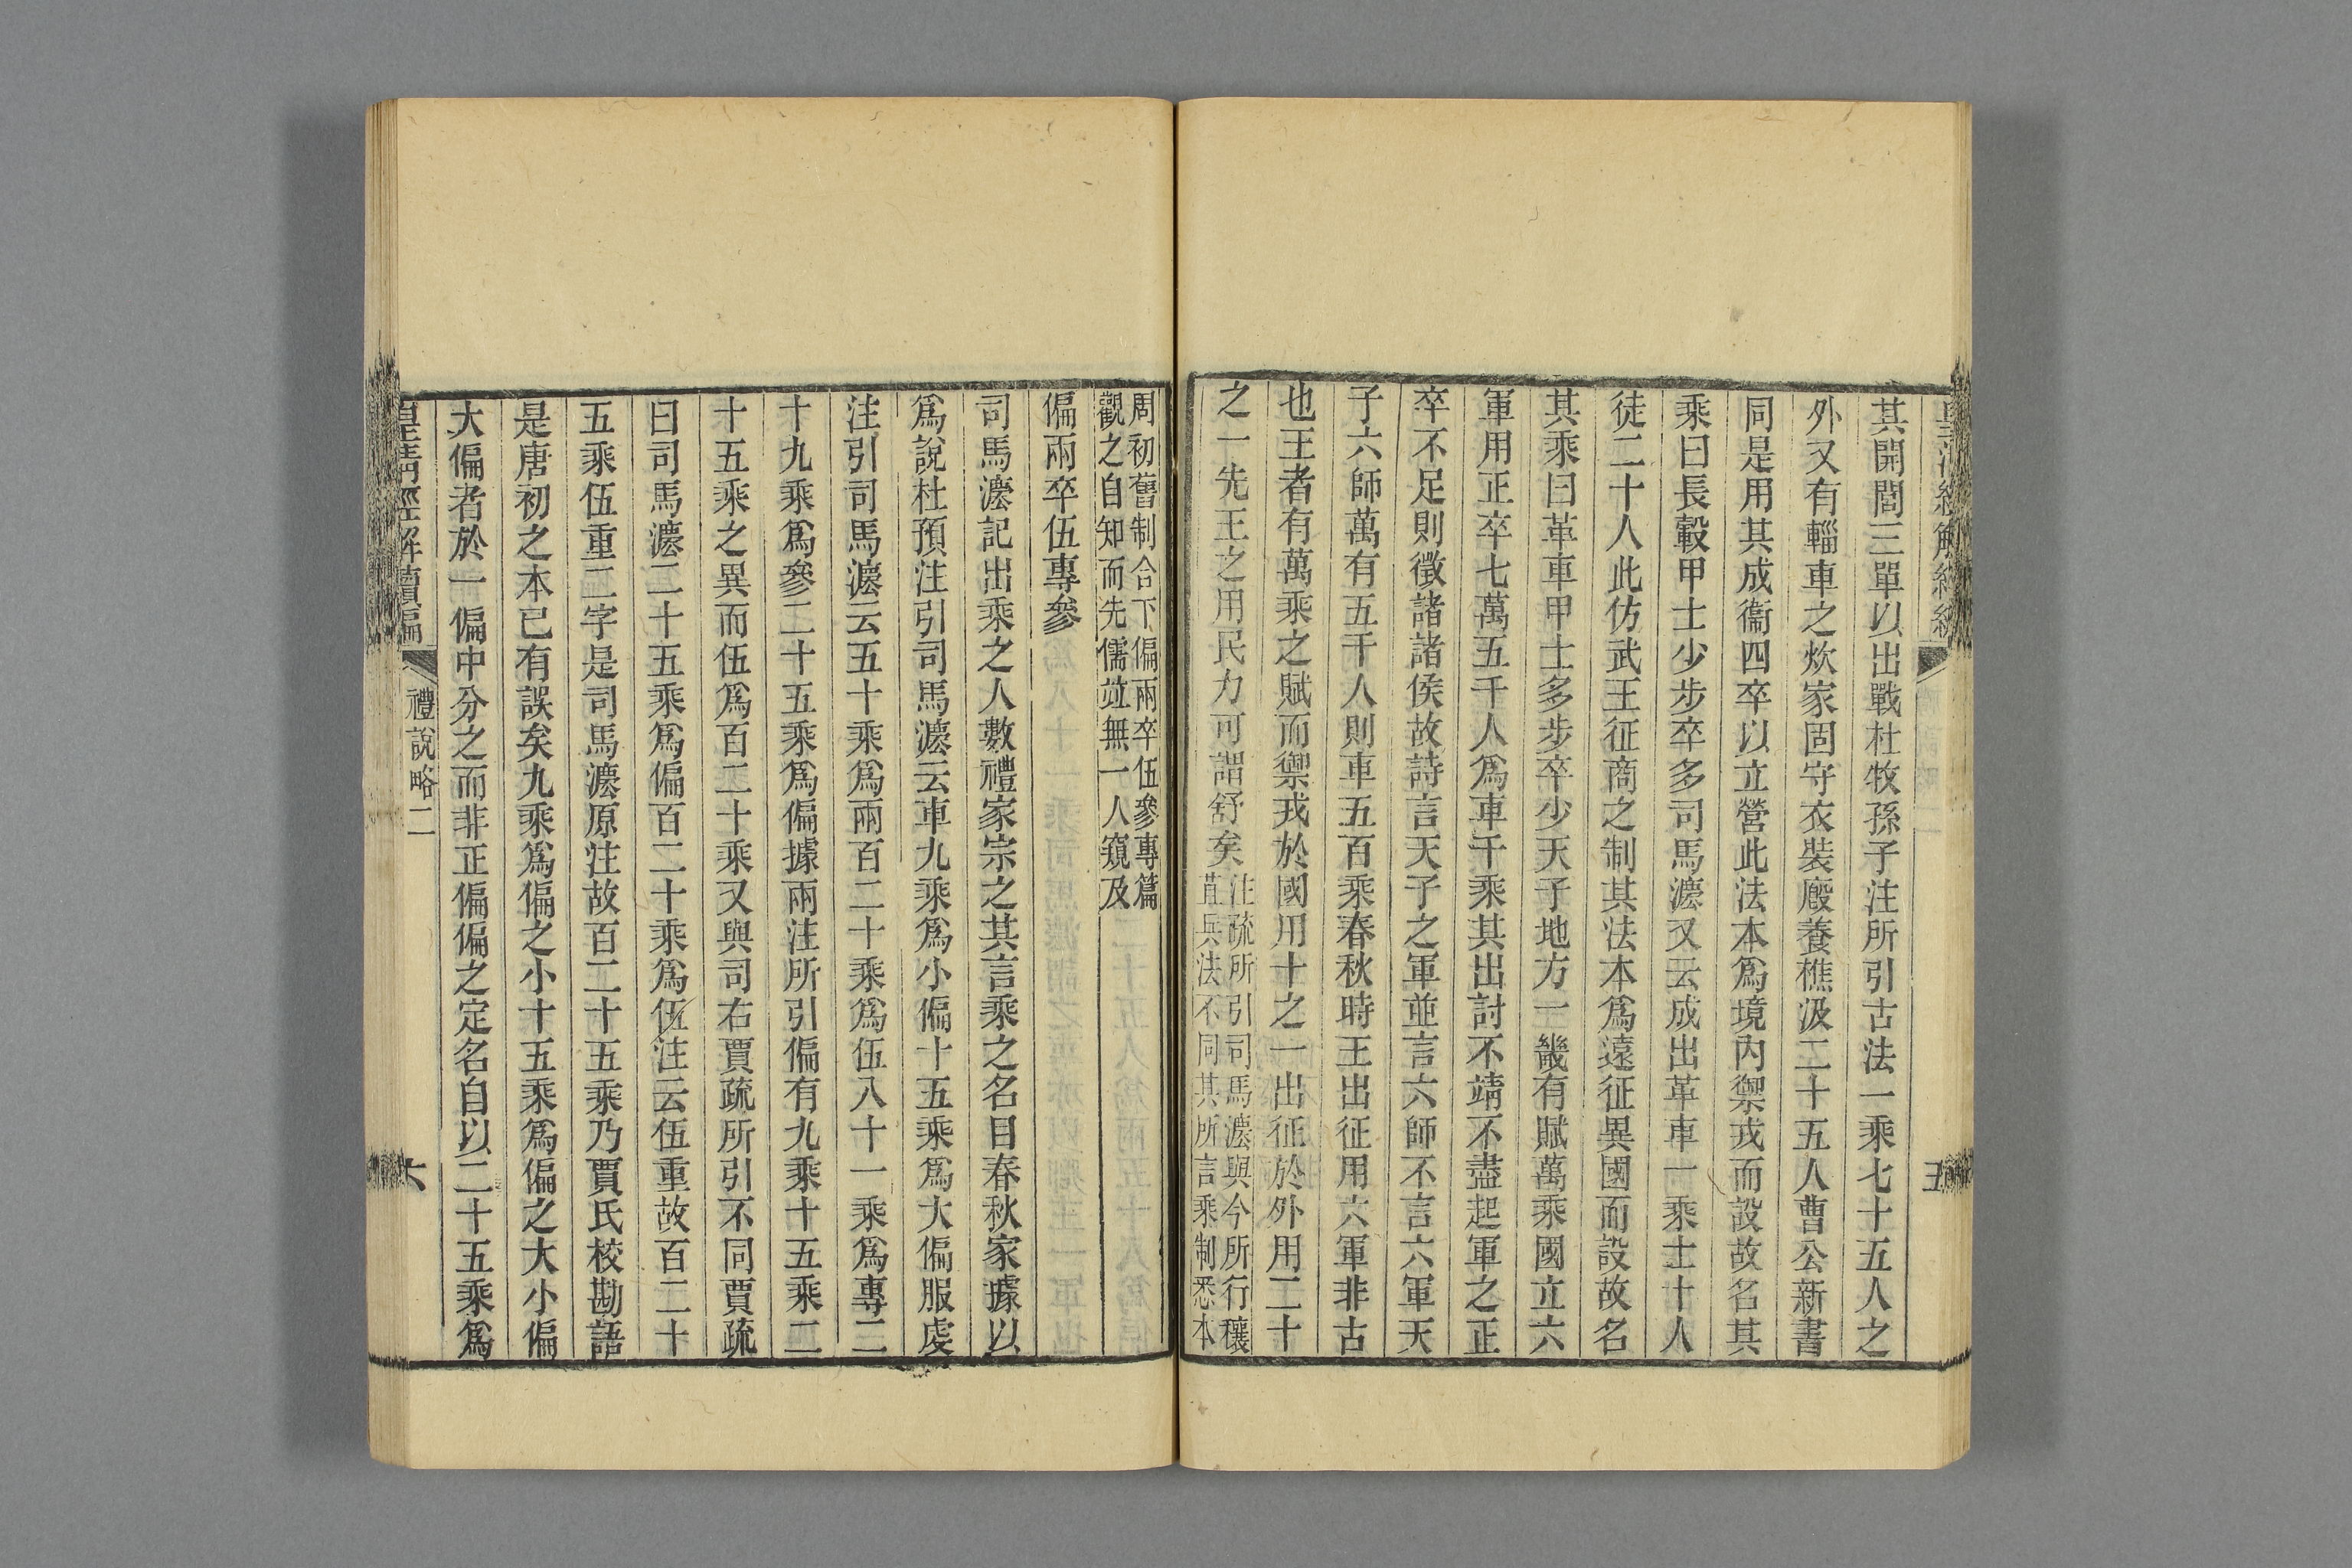 其開閻三單以出戰杜牧孫子注所引古法一乘七十五人之
外又有輜車之炊家固守衣裝廏養樵汲二十五人曹公新書
同是用其成衞四卒以立營此法本爲境內禦戎而設故名其
乘曰長轂甲士少步卒多司馬灋又云成出革車一乘士十人
徒二十人此仿武王征商之制其法本爲遠征異國而設故名
其乘曰革車甲士多步卒少天子地方一畿有賦萬乘國立六
軍用正卒七萬五千人爲車千乘其出討不靖不盡起軍之正
卒不足則徵諸諸侯故詩言天子之軍並言六師不言六軍天
子六師萬有五千人則車五百乘春秋時王出征用六軍非古
也王者有萬乘之賦而禦戎於國用十之一出征於外用二十
之一先王之用民力可謂舒矣
注疏所引司馬灋與今所行穰
苴兵法不同其所言乘制悉本
五
周初舊制合下偏兩卒伍參專篇
觀之自知而先儒竝無一人窺及
偏兩卒伍專參
司馬灋記出乘之人數禮家宗之其言乘之名目春秋家據以
爲說杜預注引司馬灋云車九乘爲小偏十五乘爲大偏服虔
注引司馬灋云五十乘爲兩百二十乘爲伍八十一乘爲專二
十九乘爲參二十五乘爲偏據兩注所引偏有九乘十五乘二
十五乘之異而伍爲百二十乘又與司右賈疏所引不同賈疏
曰司馬灋二十五乘爲偏百二十乘爲伍注云伍重故百二十
五乘伍重二字是司馬灋原注故百二十五乘乃賈氏校勘語
是唐初之本已有誤矣九乘爲偏之小十五乘爲偏之大小偏
大偏者於一偏中分之而非正偏偏之定名自以二十五乘爲
皇淸經解續編
禮說略二
六